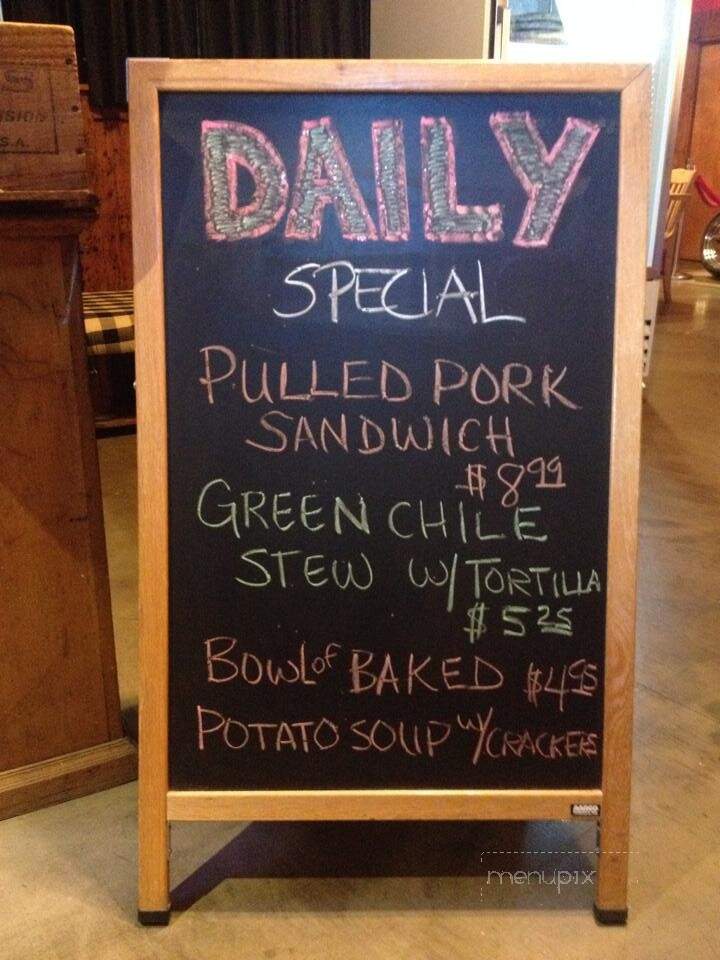 DAILY
SPECIAL
PULLED PORK
SANDWICH
$8.99
GREEN CHILE
STEW W/ TORTILLA
$5.25
BOWL OF BAKED $4.95
POTATO SOUP W/ CRACKERS
menupix